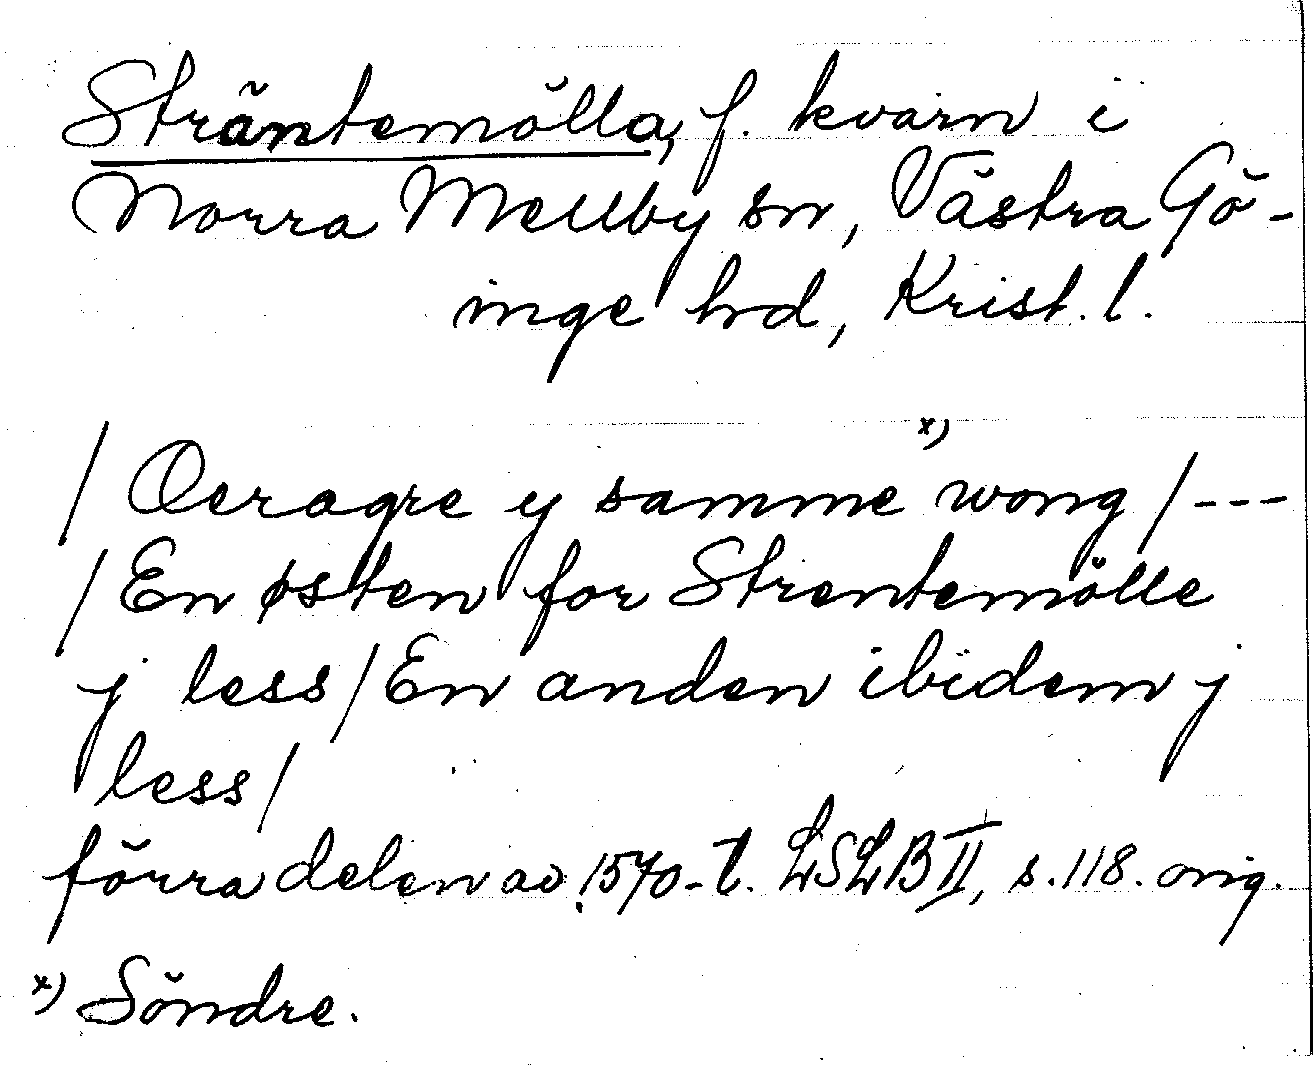 Sträntemölla, f. kvarn i
Norra Mellby sn, Västra Gö-
inge hd, Krist. l.
x)
/ Oeragre y samme wong / ---
/ En østen for Strentemölle
j less / En anden ibidem j
less /
förra delen av 1570-t. LSLB II, s. 118. orig.
x) Söndre.